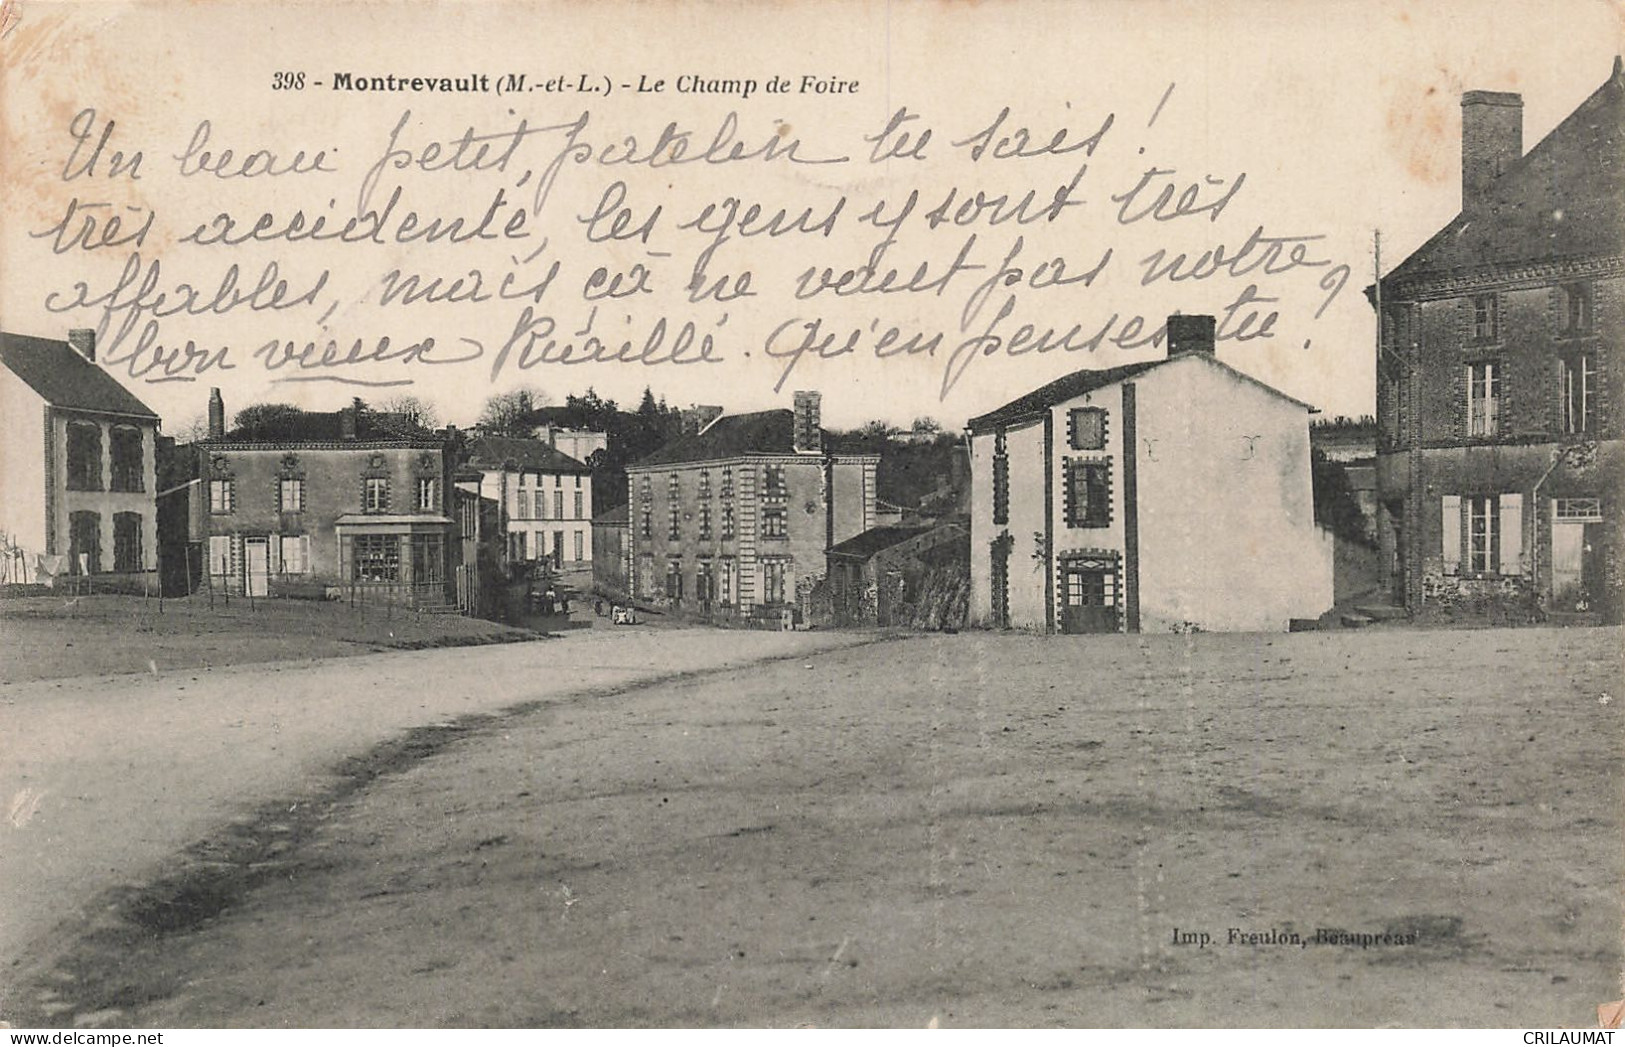 398 - Montrevault (M.-et-L.) - Le Champ de Foire
Un beau petit, patelin tu sais !
très accidenté, les gens y sont très
affables, mais çà ne vaut pas notre
bon vieux . Qu'en penses-tu ?
Imp. Freulon, Beaupreau
CRILAUMAT